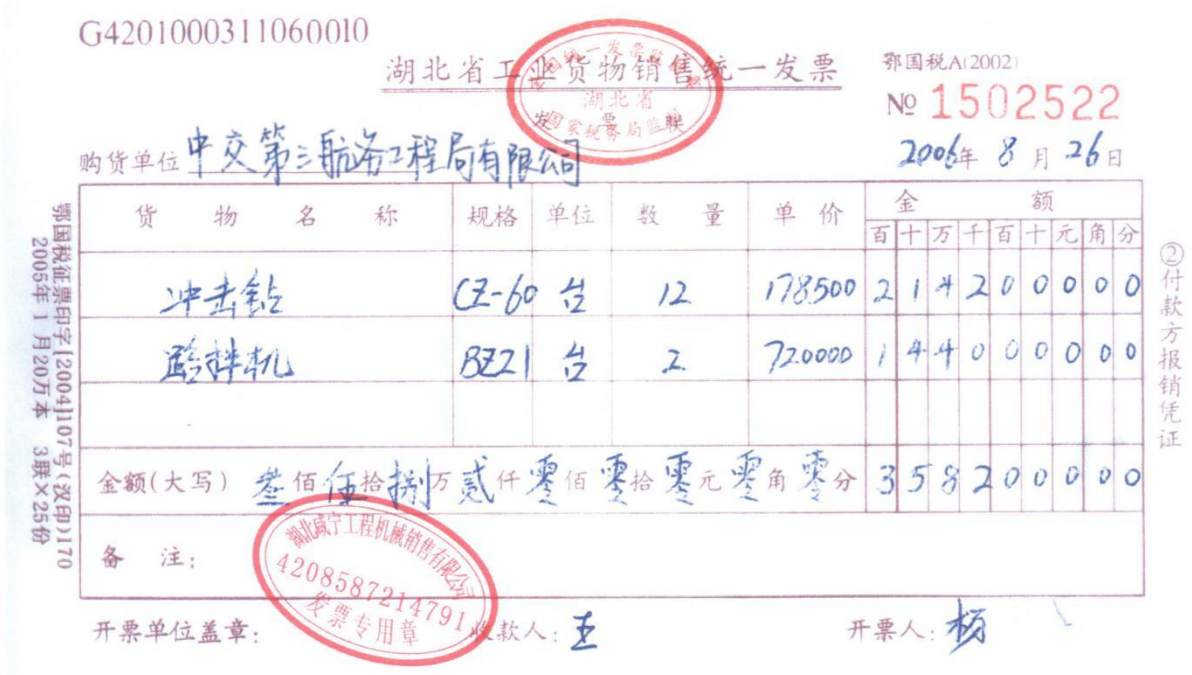 G4201000311060010
湖北省工业货物销售统一发票
鄂国税A(2002)
发票联
全国统一发票监制章
湖北省
国家税务局监制
№ 1502522
购货单位 中交第三航务工程局有限公司
2006年 8月 26日
货物名称 规格 单位 数量 单价 金额
百 十 万 千 百 十 元 角 分
冲击钻 CZ-60 台 12 178500 2 1 4 2 0 0 0 0 0
砼拌机 BZ21 台 2 720000 1 4 4 0 0 0 0 0 0
金额(大写) 叁佰伍拾捌万贰仟零佰零拾零元零角零分 3 5 8 2 0 0 0 0 0
备注:
湖北咸宁工程机械销售有限公司
4208587214791
发票专用章
开票单位盖章: 收款人:王 开票人:杨
鄂国税征票印字[2004]107号(汉印)170
2005年1月20万本 3联×25份
②付款方报销凭证